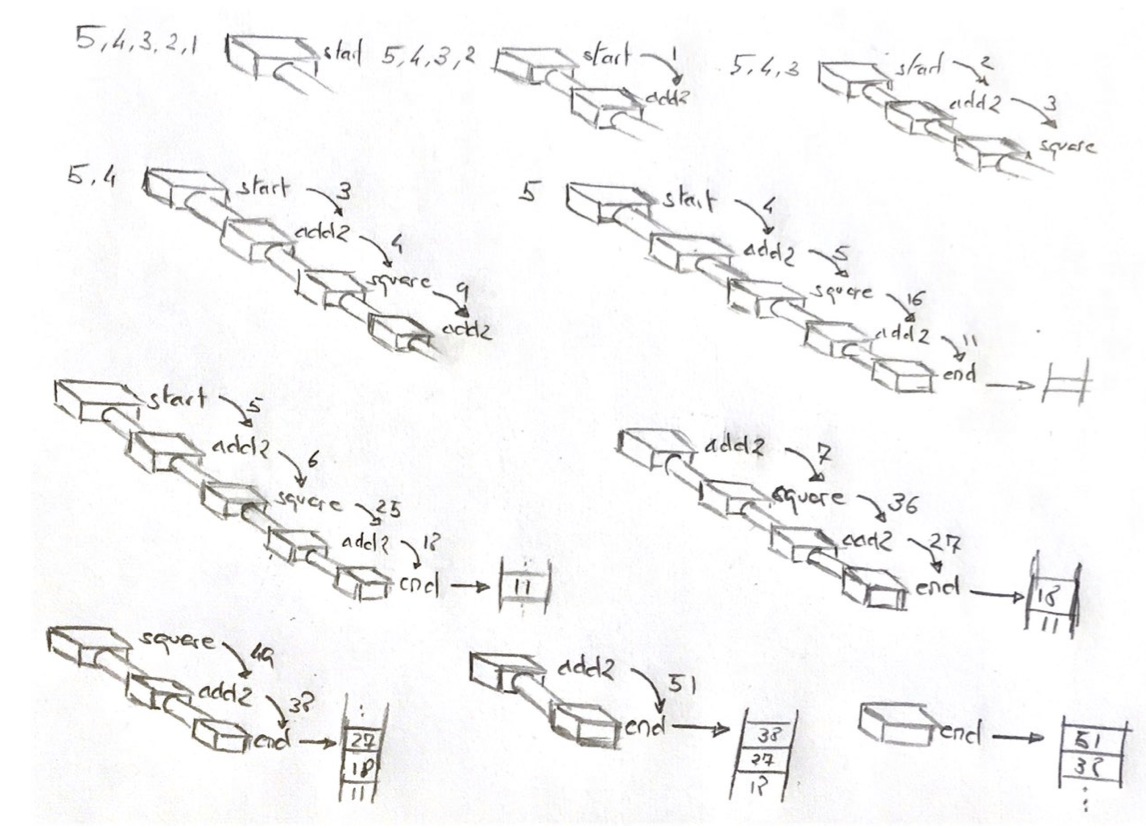 5,4,3,2,1 start
5,4,3,2 start 1
add2
5,4,3 start 2
add2 3
square
5,4 start 3
add2 4
square 9
add2
5 start 4
add2 5
square 16
add2 11
end
start 5
add2 6
square 25
add2 18
end 11
add2 7
square 36
add2 27
end 18
11
square 49
add2 38
end 27
18
11
add2 51
end 38
27
18
end 51
38